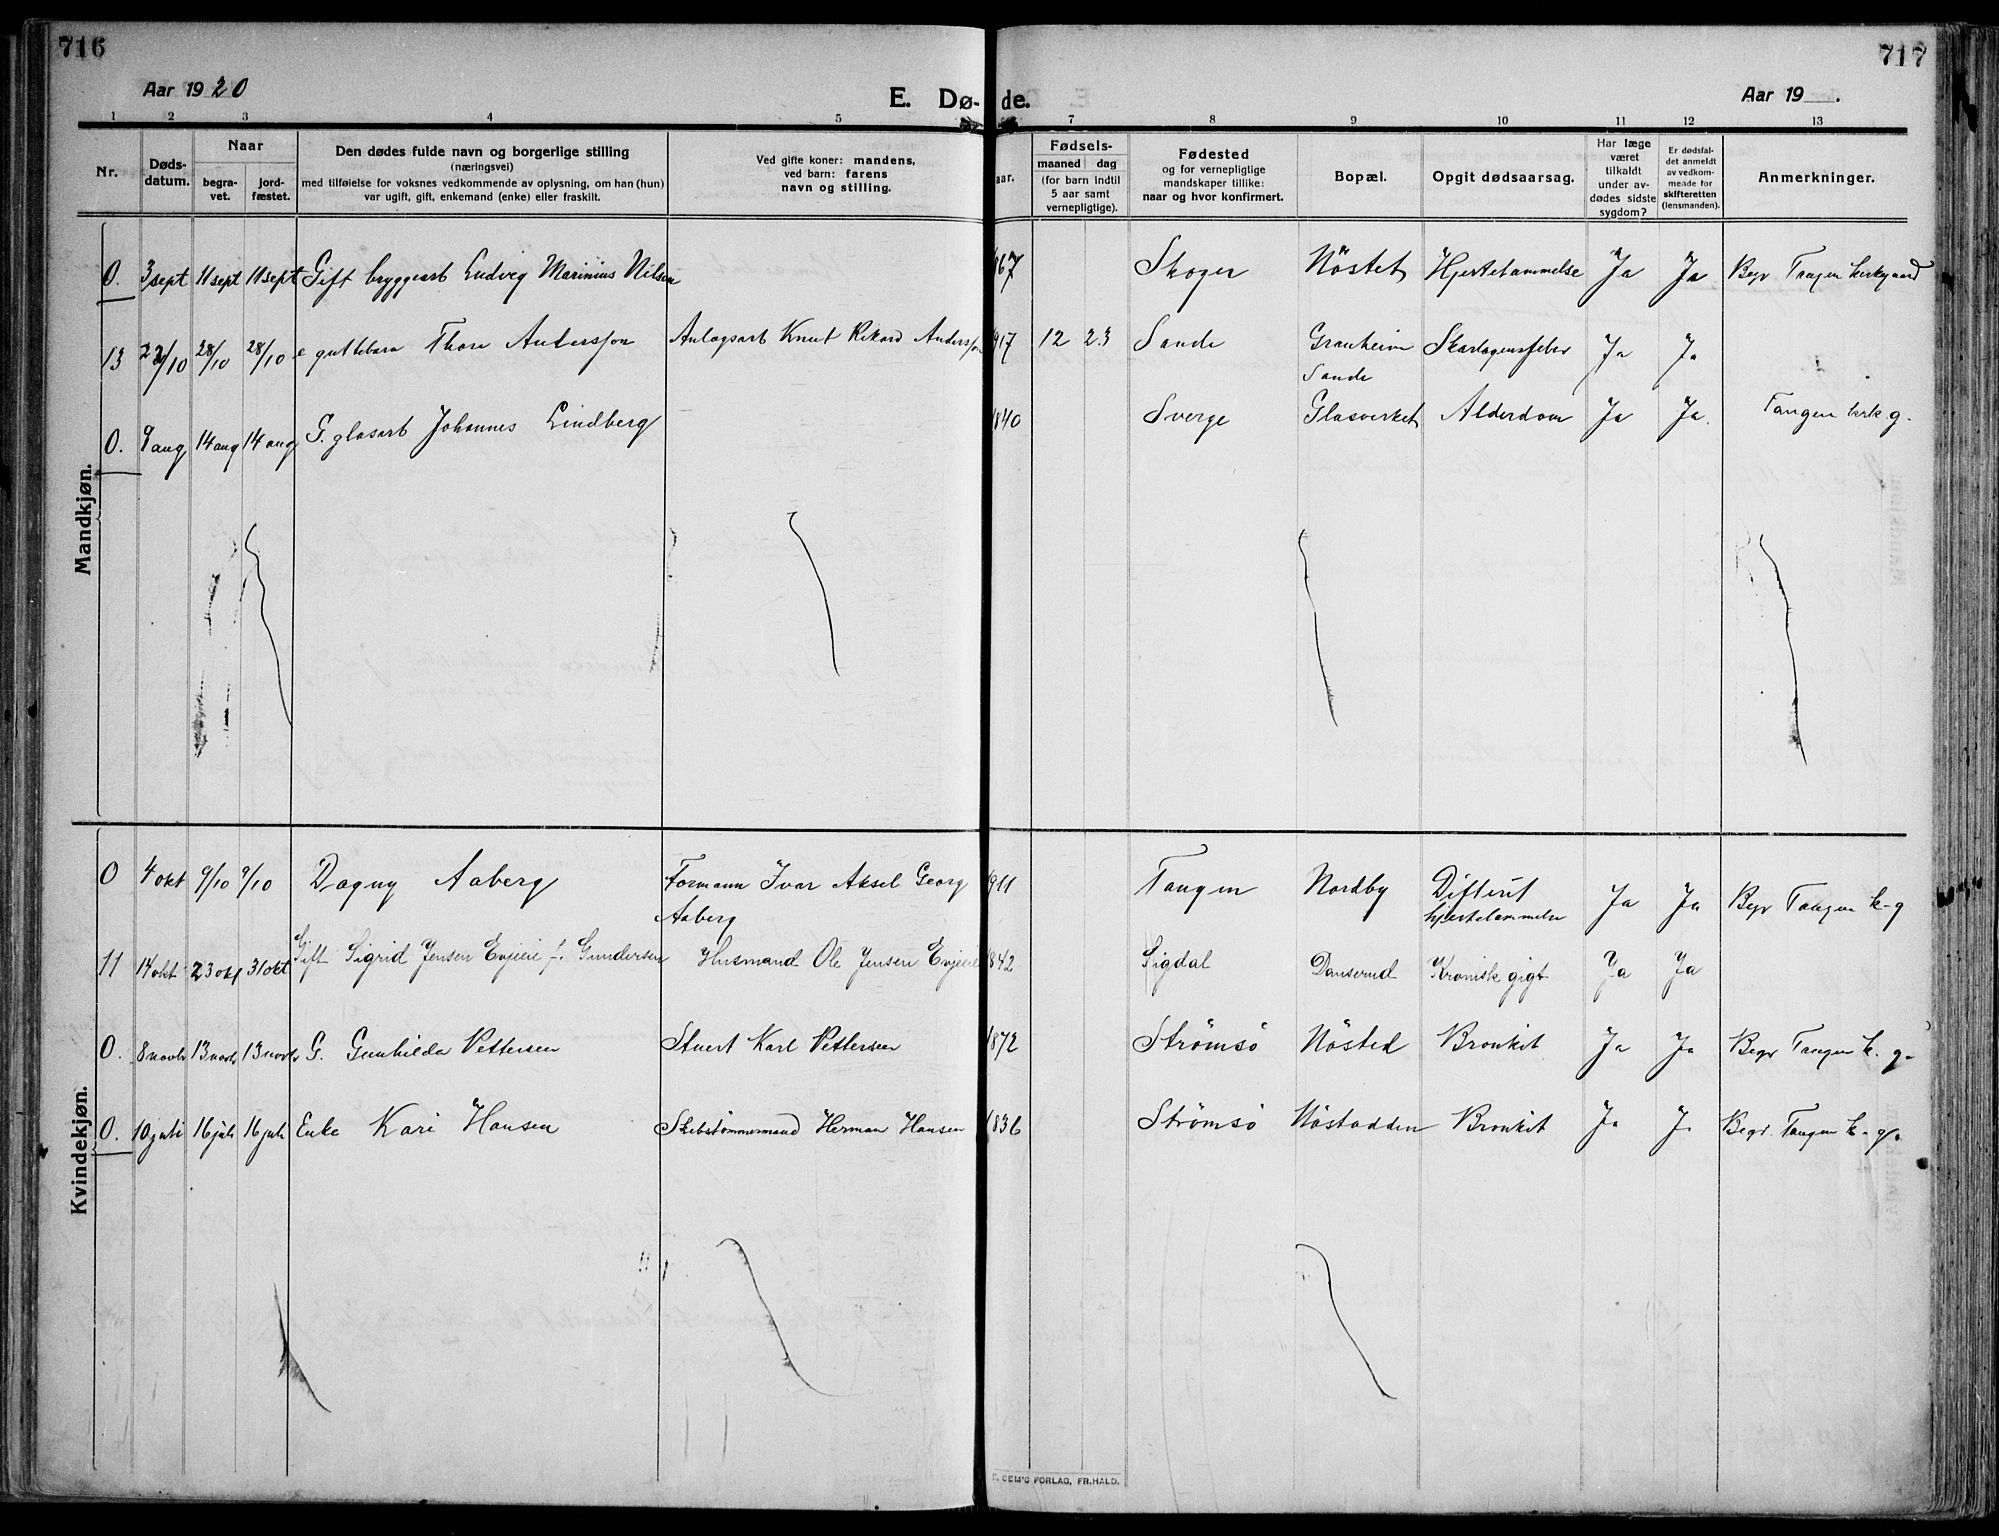 716
717
Aar 1920
E. Dø-
de.
Aar 19 .
1 2 3 4 5 7 8 9 10 11 12 13
Nr.
Døds-
datum.
Naar
begra-
vet.
jord-
fæstet.
Den dødes fulde navn og borgerlige stilling
(næringsvei)
med tilføielse for voksnes vedkommende av oplysning, om han (hun)
var ugift, gift, enkemand (enke) eller fraskilt.
Ved gifte koner: mandens,
ved barn: farens
navn og stilling.
aar.
Fødsels-
maaned dag
(for barn indtil
5 aar samt
vernepligtige).
Fødested
og for vernepligtige
mandskaper tillike:
naar og hvor konfirmert.
Bopæl.
Opgit dødsaarsag.
Har læge
været
tilkaldt
under av-
dødes sidste
sygdom?
Er dødsfal-
det anmeldt
av vedkom-
mende for
skifteretten
(lensmanden).
Anmerkninger.
Mandkjøn.
0. 3 sept 11 sept 11 sept Gift bryggearb Ludvig Marinius Nilsen 867 Skoger Nöstet Hjertelammelse Ja Ja Begr Tangen kirkgaard
13 22/10 28/10 28/10 e guttebarn Thore Andersson Anlagsarb Knut Rikard Andersson 917 12 23 Sande Granheim Skarlagensfeber Ja Ja
Sande
0. 9 aug 14 aug 14 aug G. glasarb Johannes Lindberg 1840 Sverge Glasverket Alderdom Ja Ja. Tangen krk g.
Kvindekjøn.
0 4 okt 9/10 9/10 Dagny Aaberg Formann Ivar Aksel Georg 911 Tangen Nordby Difterit Ja Ja Begr Tangen k-g
Aaberg hjertelammelse
11 14 okt 23 okt 31 okt Gift Sigrid Jensen Evjeie f. Gundersen Husmand Ole Jensen Evjeie 1842 Sigdal Danserud Kronisk gigt Ja Ja
0. 8 novbr 13 novbr 13 novbr G. Gunhilda Pettersen Stuert Karl Pettersen 1872 Strømsø Nøsted Bronkit Ja Ja Begr Tangen k. g-
0. 10 juli 16 juli 16 juli Enke Kari Hansen Skibstömmermand Herman Hansen 1836 Strømsø Nöstodden Bronkit Ja J. Begr. Tangen k-g.
FORLAG, FR.HALD.